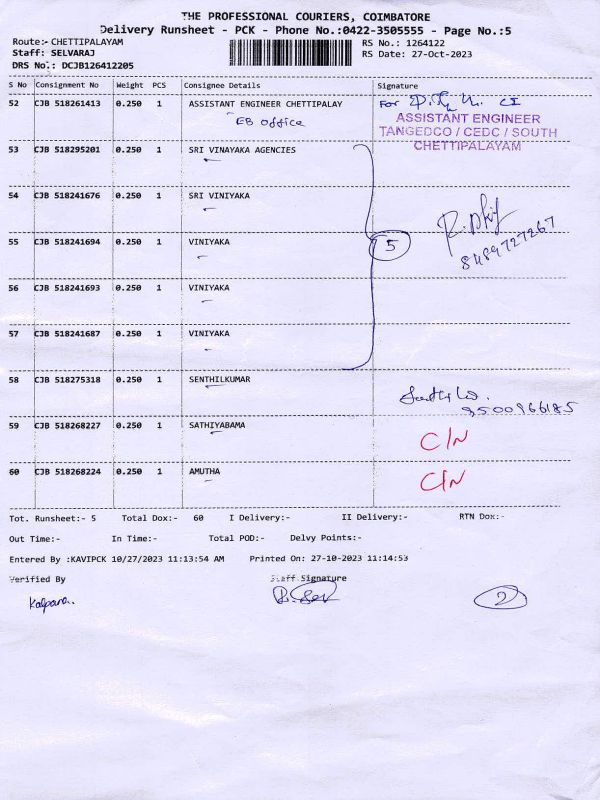 THE PROFESSIONAL COURIERS, COIMBATORE
Delivery Runsheet - PCK - Phone No.:0422-3505555 - Page No.:5
Route:- CHETTIPALAYAM RS No.: 1264122
Staff: SELVARAJ RS Date: 27-Oct-2023
DRS No.: DCJB126412205
S No Consignment No Weight PCS Consignee Details Signature
52 CJB 518261413 0.250 1 ASSISTANT ENGINEER CHETTIPALAY
EB office
For
ASSISTANT ENGINEER
TANGEDCO / CEDC / SOUTH
CHETTIPALAYAM
53 CJB 518295201 0.250 1 SRI VINAYAKA AGENCIES
54 CJB 518241676 0.250 1 SRI VINIYAKA
55 CJB 518241694 0.250 1 VINIYAKA
5
8489727267
56 CJB 518241693 0.250 1 VINIYAKA
57 CJB 518241687 0.250 1 VINIYAKA
58 CJB 518275318 0.250 1 SENTHILKUMAR
9500966185
59 CJB 518268227 0.250 1 SATHIYABAMA C/N
60 CJB 518268224 0.250 1 AMUTHA C/N
Tot. Runsheet:- 5 Total Dox:- 60 I Delivery:- II Delivery:- RTN Dox:-
Out Time:- In Time:- Total POD:- Delvy Points:-
Entered By :KAVIPCK 10/27/2023 11:13:54 AM Printed On: 27-10-2023 11:14:53
Verified By Staff Signature
Kalpana.. 2